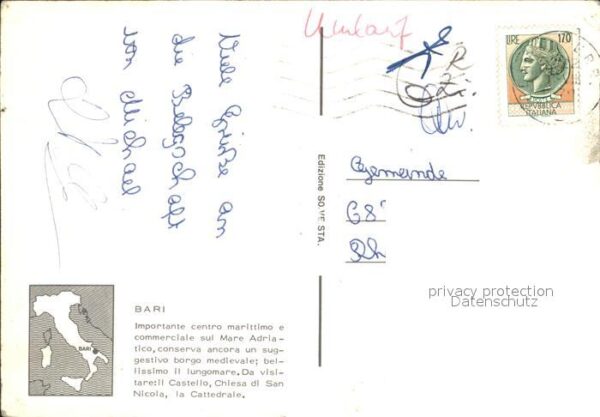 Umlauf
LIRE 170
REPUBBLICA
ITALIANA
Viele Grüße an
die Belegschaft
von Michael
R
Edizione SO.VE STA.
Gemeinde
68'
privacy protection
Datenschutz
BARI
BARI
Importante centro marittimo e
commerciale sul Mare Adria-
tico,conserva ancora un sug-
gestivo borgo medievale; bel-
lissimo il lungomare. Da visi-
tare:il Castello, Chiesa di San
Nicola, la Cattedrale.